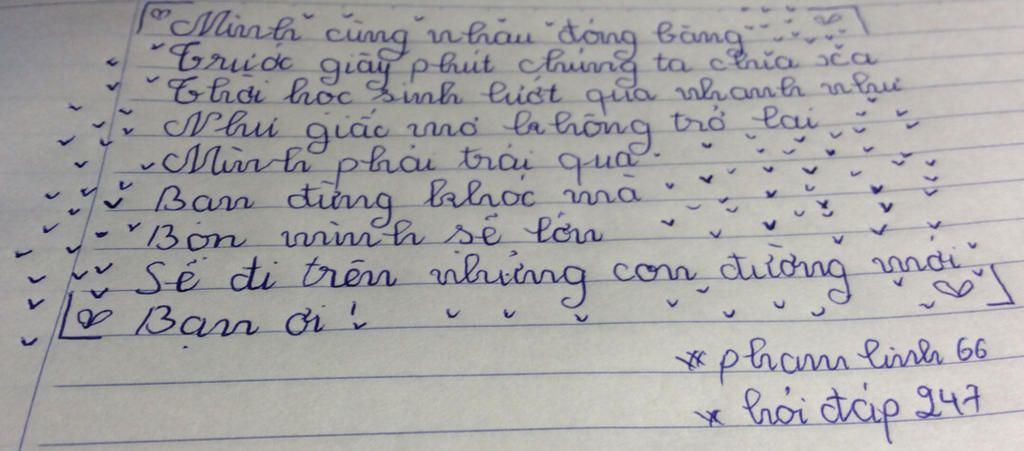 Mình cùng nhau đóng băng
Trước giây phút chúng ta chia xa
Thời học sinh lướt qua nhanh như
Như giấc mơ không trở lại
Mình phải trải qua
Bạn đừng khóc mà
Bọn mình sẽ lớn
Sẽ đi trên những con đường mới
Bạn ơi !
phạm linh 66
hỏi đáp 247